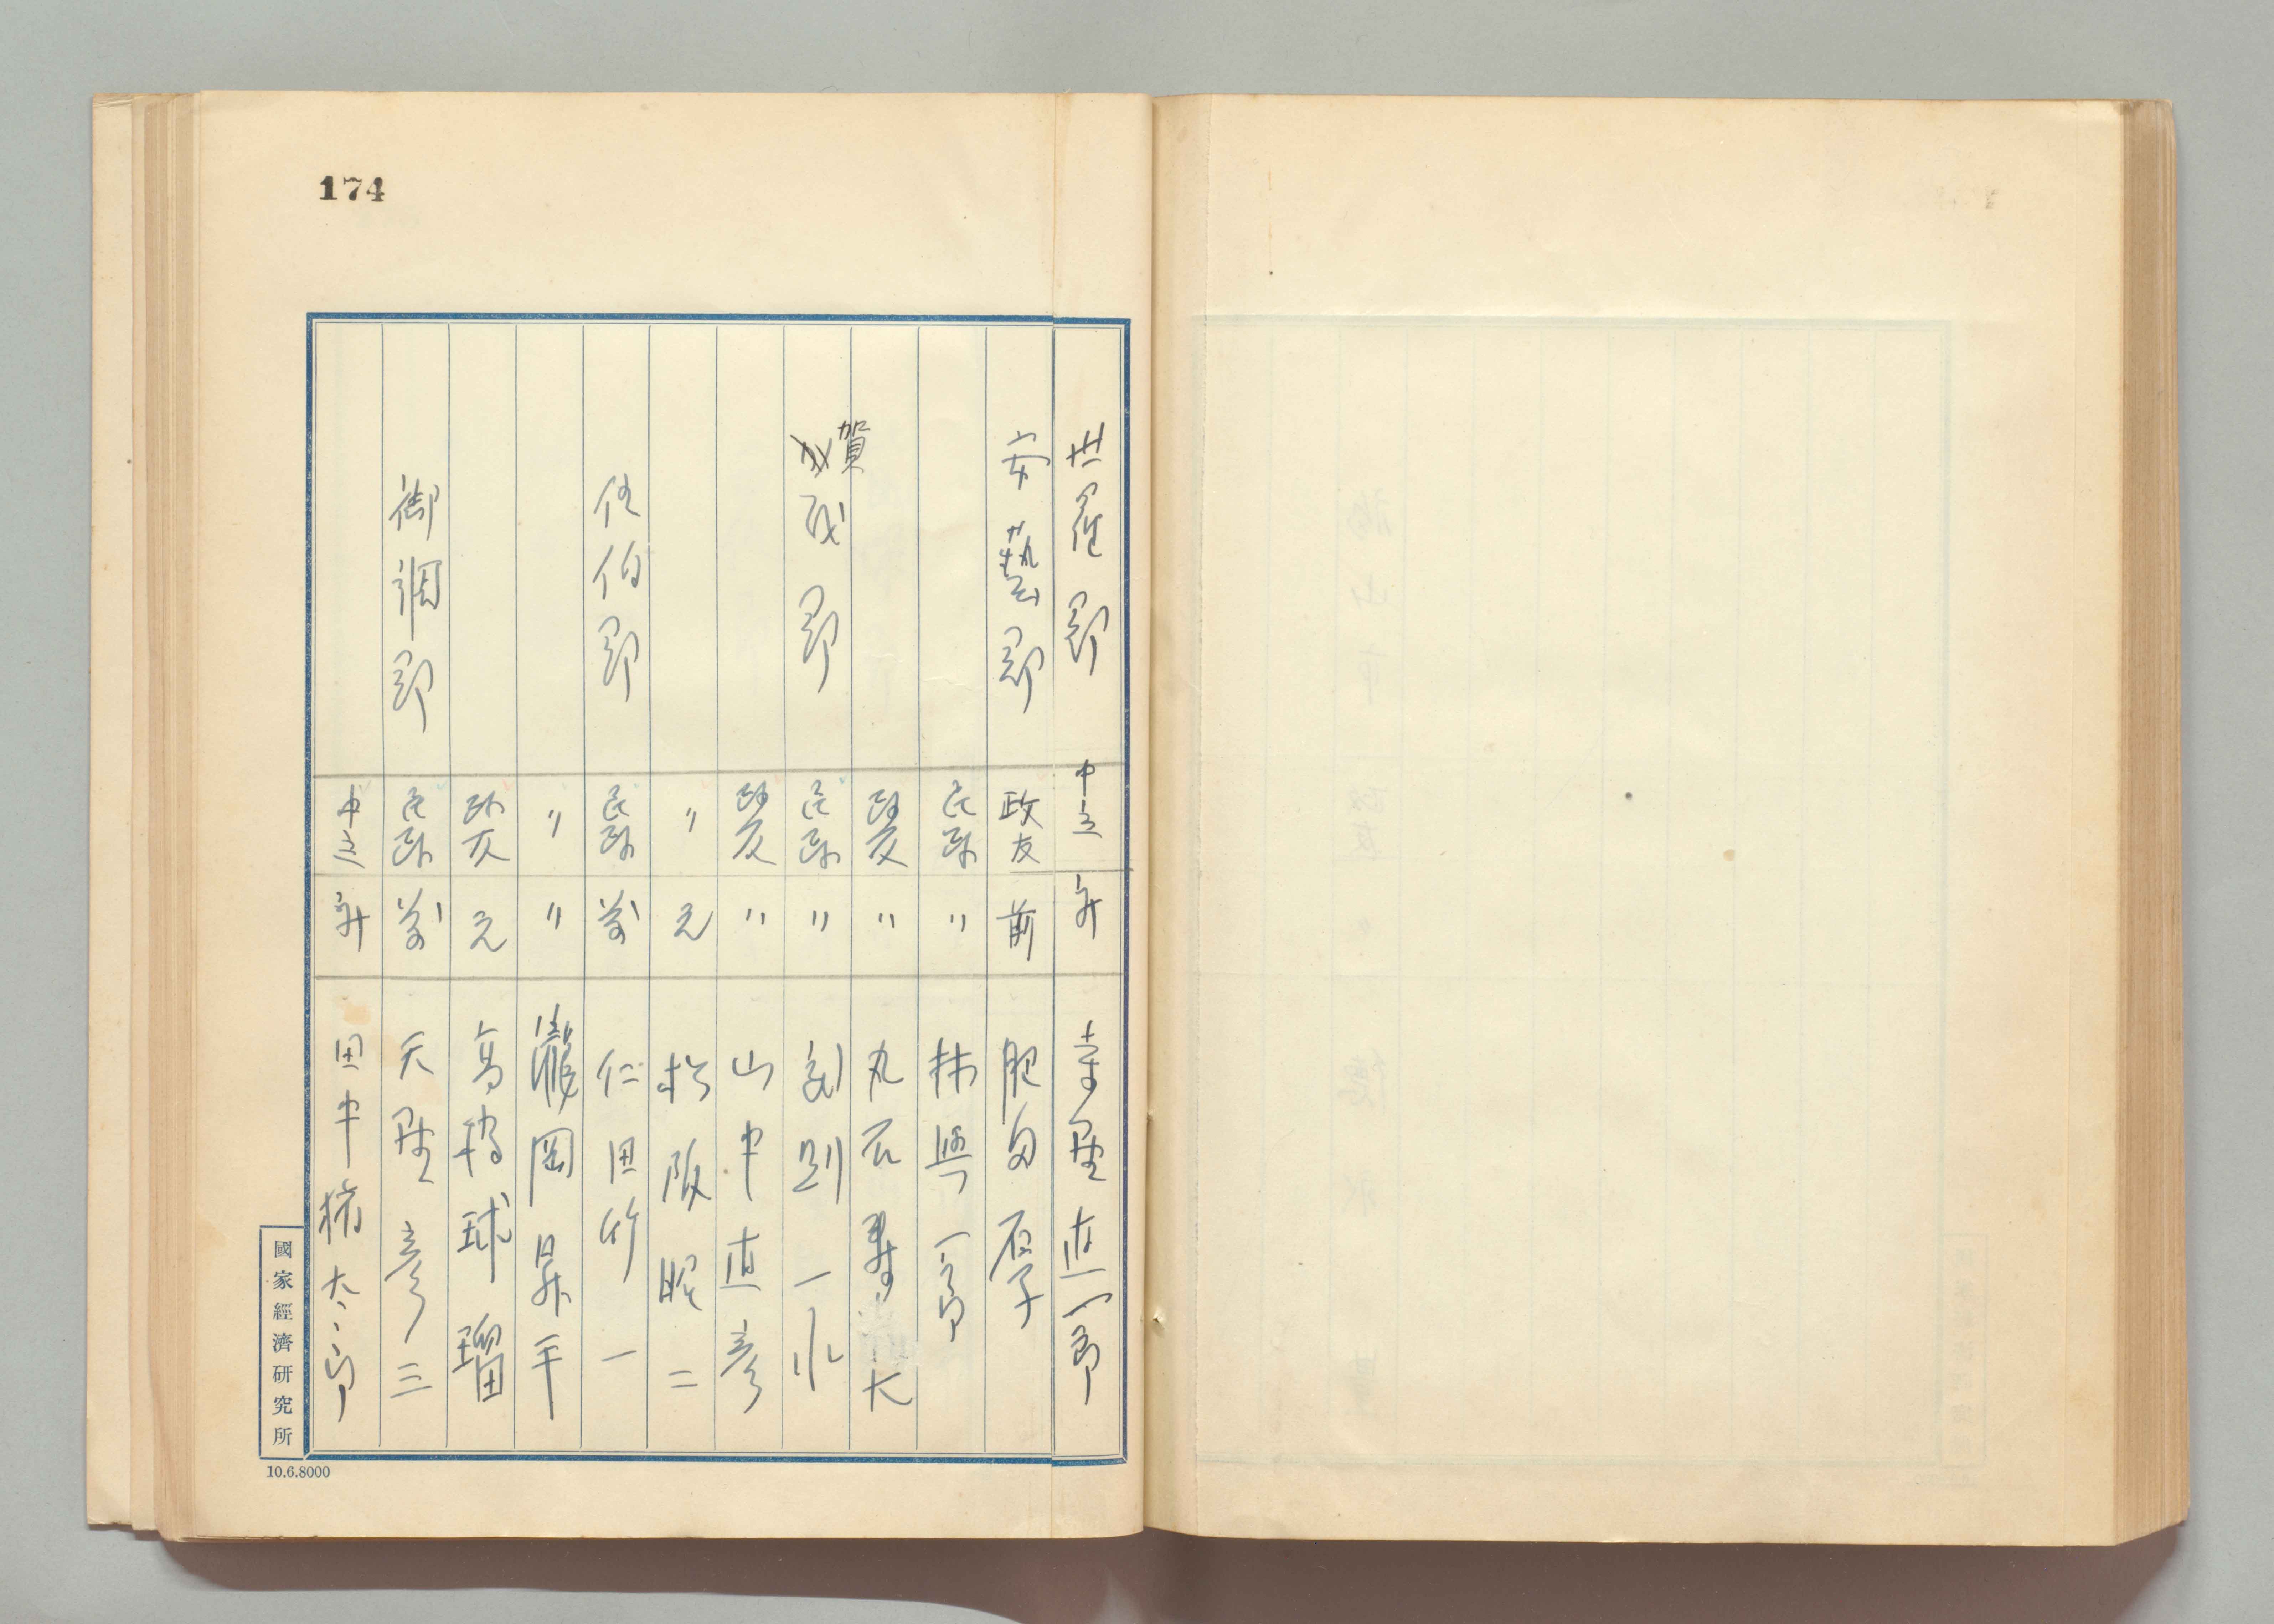 174
世羅郡 中立 新 幸野進一郎
安藝郡 政友 前 肥田石子
民政 〃 林興一郎
政友 〃 丸石壽大
賀茂郡 民政 〃 一水
政友 〃 山中直彦
〃 元 松阪昵二
佐伯郡 民政 前 仁田竹一
〃 〃 瀧岡昇平
政友 元 高橋球瑠
御調郡 民政 前 天野彦三
中立 新 田中太郎
國家經濟研究所
10.6.8000